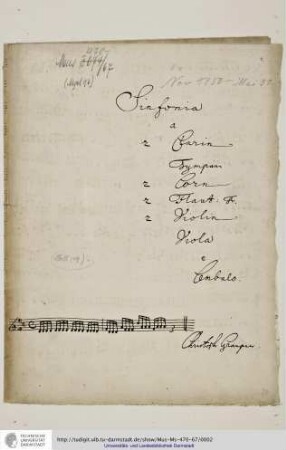 Mus 3044/67
Nov 1750 - Mai 51
Sinfonia
a
2 Clarin
Tympan
2 Corn
2 Flaut: Tr.
2 Violin
Viola
e
Cembalo.
Christoph Graupner.
TECHNISCHE
UNIVERSITÄT
DARMSTADT
http://tudigit.ulb.tu-darmstadt.de/show/Mus-Ms-470-67/0002
Universitäts- und Landesbibliothek Darmstadt